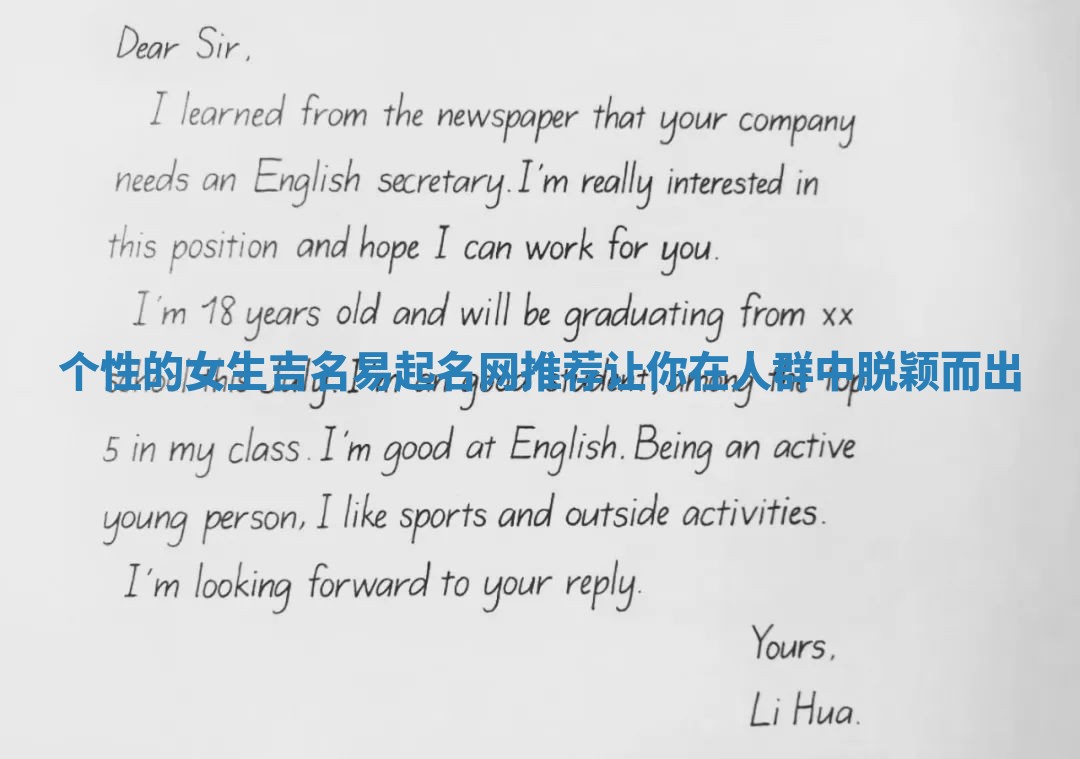 Dear Sir,
I learned from the newspaper that your company
needs an English secretary. I'm really interested in
this position and hope I can work for you.
I'm 18 years old and will be graduating from xx
个性的女生吉名易起名网推荐让你在人群中脱颖而出
school this July. I'm an good student, among the top
5 in my class. I'm good at English. Being an active
young person, I like sports and outside activities.
I'm looking forward to your reply.
Yours,
Li Hua.